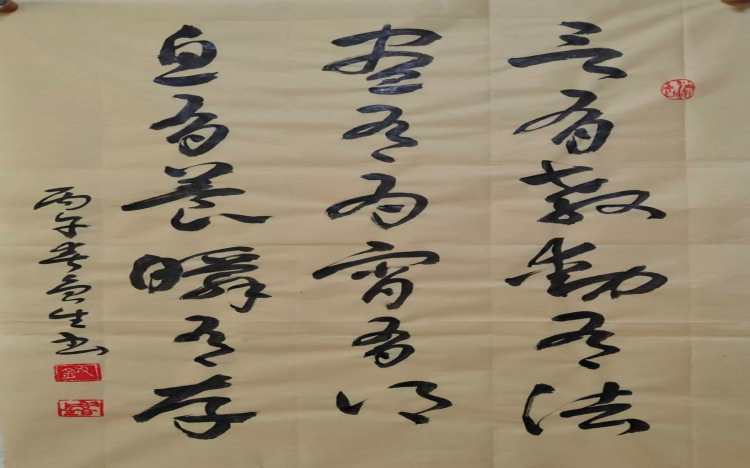 言有教動有法
晝有為宵有得
息有養瞬有存
丙午春意生书